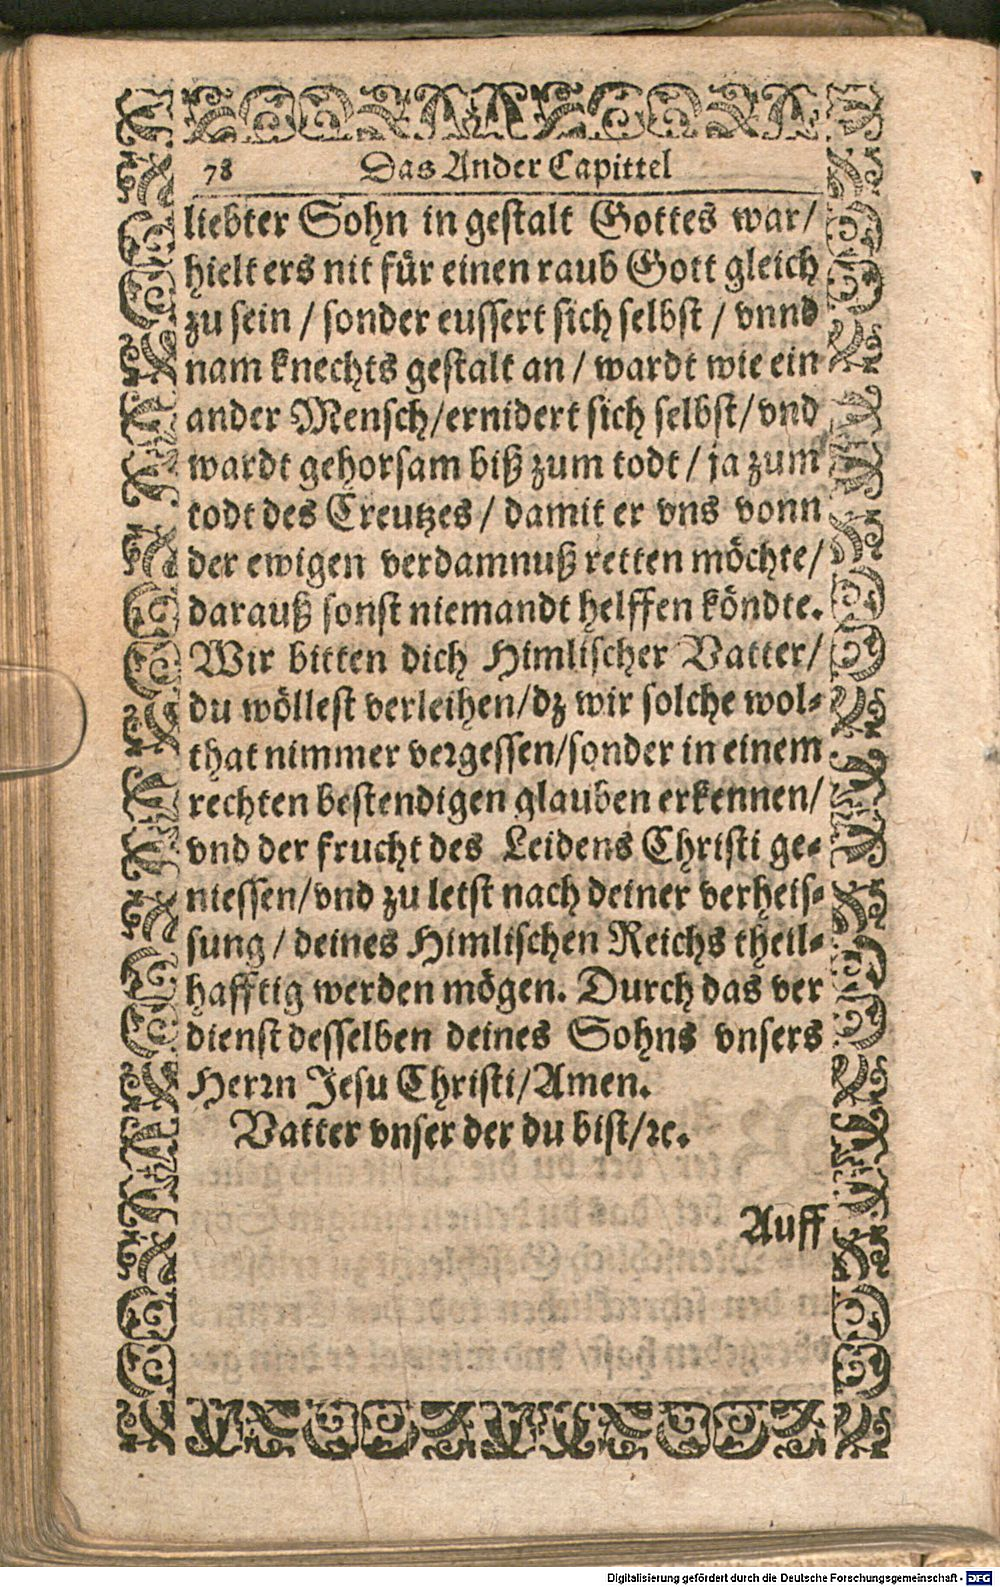 78 Das Ander Capittel
liebter Sohn in gestalt Gottes war/
hielt ers nit für einen raub Gott gleich
zu sein / sonder eussert sich selbst / vnnd
nam knechts gestalt an / wardt wie ein
ander Mensch/ernidert sich selbst/vnd
wardt gehorsam biß zum todt / ja zum
todt des Creutzes / damit er vns vonn
der ewigen verdamnuß retten möchte/
darauß sonst niemandt helffen köndte.
Wir bitten dich Himlischer Vatter/
du wöllest verleihen/dz wir solche wol-
that nimmer vergessen/sonder in einem
rechten bestendigen glauben erkennen/
vnd der frucht des Leidens Christi ge-
niessen/vnd zu letst nach deiner verheis-
sung / deines Himlischen Reichs theil-
hafftig werden mögen. Durch das ver
dienst desselben deines Sohns vnsers
Herrn Jesu Christi/Amen.
Vatter vnser der du bist/ꝛc.
Auff
Digitalisierung gefördert durch die Deutsche Forschungsgemeinschaft - DFG